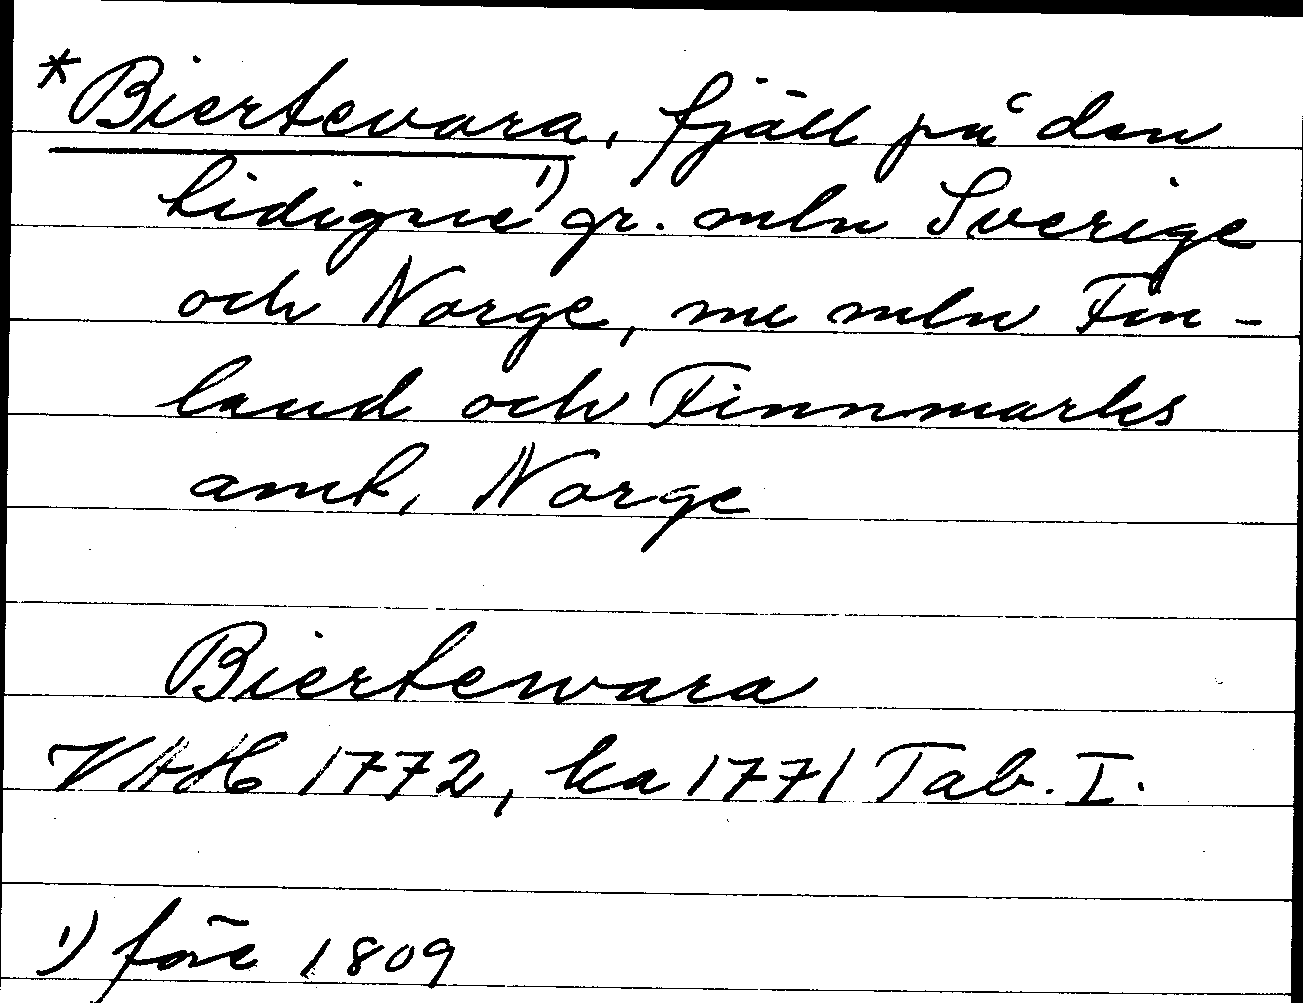 *Biertevara, fjäll på den
tidigare¹⁾ gr. mln Sverige
och Norge, nu mln Fin-
land och Finnmarks
amt, Norge
Biertewara
VAH 1772, ka 1771 Tab. I.
¹⁾ före 1809